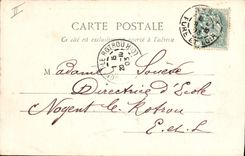 II
CARTE POSTALE
Ce côté est exclusivement réservé à l'adresse
Madame
Directrice d'École
Nogent le Rotrou
E.-et-L.